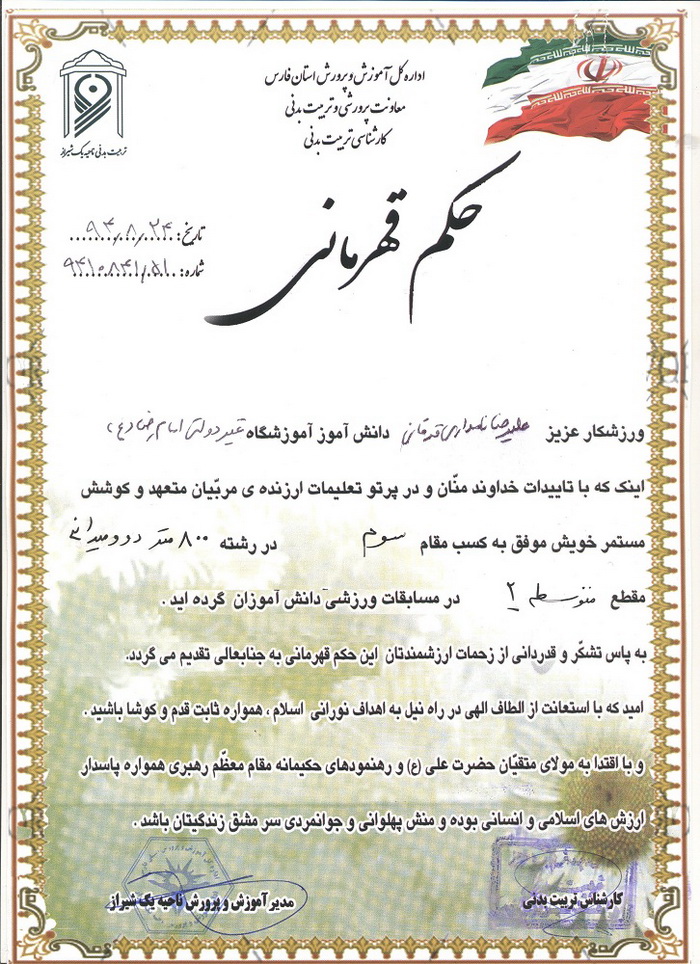 اداره کل آموزش و پرورش استان فارس
معاونت پرورشی و تربیت بدنی
کارشناسی تربیت بدنی
تربیت بدنی ناحیه یک شیراز
حکم قهرمانی
تاریخ: ۹۴/۸/۲۴
شماره:
ورزشکار عزیز علیرضا نامداری دانش آموز آموزشگاه غیر دولتی امام رضا (ع)
اینک که با تاییدات خداوند منّان و در پرتو تعلیمات ارزنده ی مربّیان متعهد و کوشش
مستمر خویش موفق به کسب مقام سوم در رشته ۸۰۰ متر دوومیدانی
مقطع متوسطه ۲ در مسابقات ورزشی دانش آموزان گرده اید .
به پاس تشکّر و قدردانی از زحمات ارزشمندتان این حکم قهرمانی به جنابعالی تقدیم می گردد.
امید که با استعانت از الطاف الهی در راه نیل به اهداف نورانی اسلام ، همواره ثابت قدم و کوشا باشید .
و با اقتدا به مولای متقیّان حضرت علی (ع) و رهنمودهای حکیمانه ، مقام معظّم رهبری همواره پاسدار
ارزش های اسلامی و انسانی بوده و منش پهلوانی و جوانمردی سر مشق زندگیتان باشد .
کارشناس تربیت بدنی
مدیر آموزش و پرورش ناحیه یک شیراز